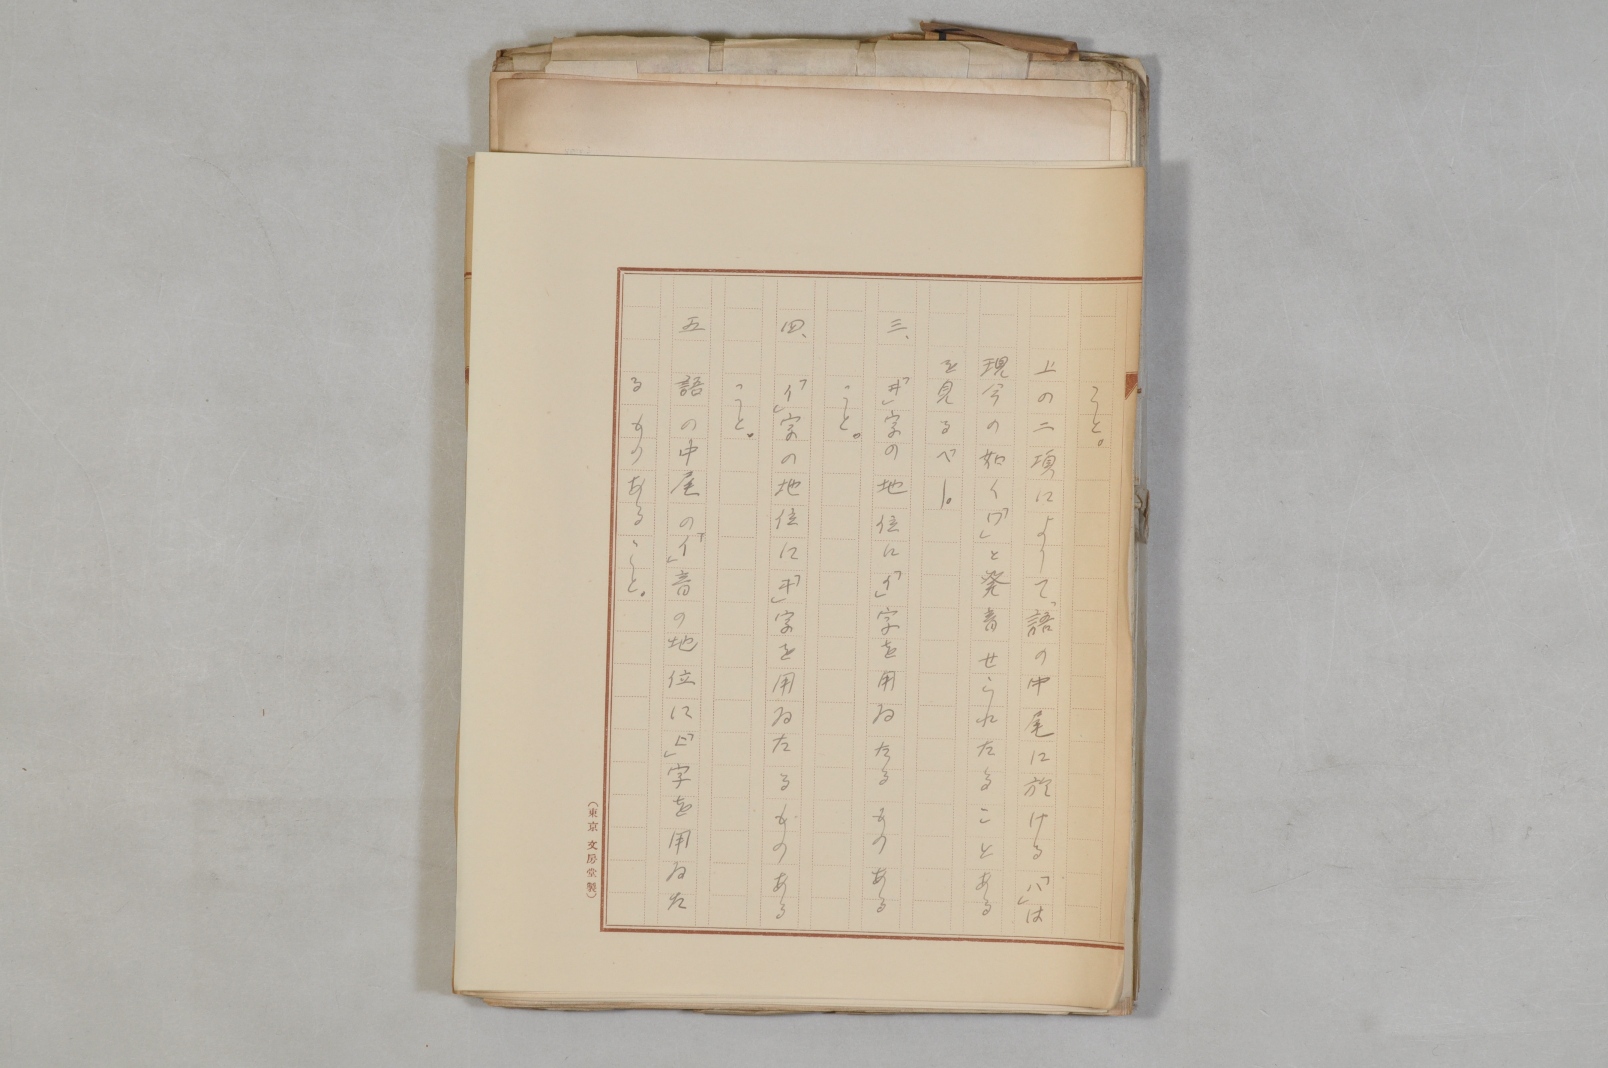 こと。
上の二項によりて、語の中尾に於ける「ハ」は
現今の如く「ワ」と発音せられたることある
を見るべし。
三、「ヰ」字の地位に「イ」字を用ゐたるものある
こと。
四、「イ」字の地位に「ヰ」字を用ゐたるものある
こと。
五 語の中尾の「イ」音の地位に「ヒ」字を用ゐた
るものあること。
(東京 文房堂製)